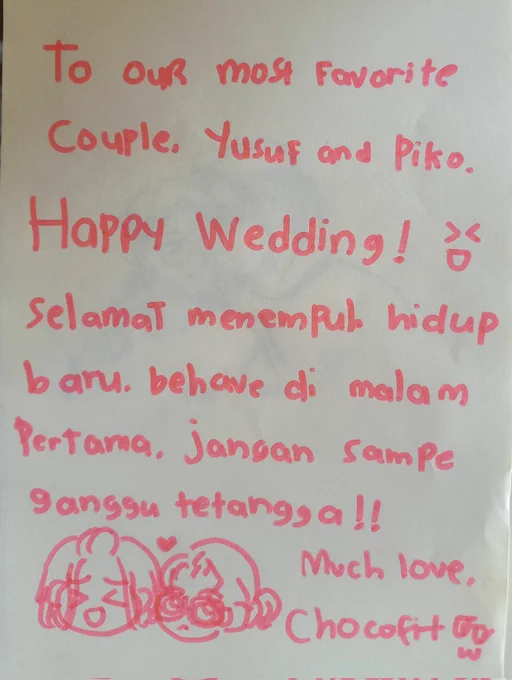 To our most Favorite
Couple. Yusuf and Piko.
Happy Wedding!
Selamat menempuh hidup
baru. behave di malam
Pertama. jangan sampe
ganggu tetangga!!
Much love,
Chocofit